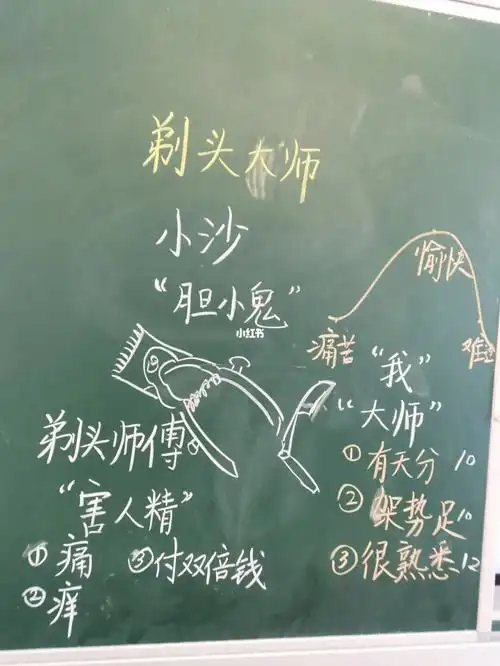 剃头大师
小沙
“胆小鬼”
小红书
愉快
痛苦
难
“我”
“大师”
①有天分 10
②架势足 10
③很熟悉 12
剃头师傅
“害人精”
①痛 ③付双倍钱
②痒